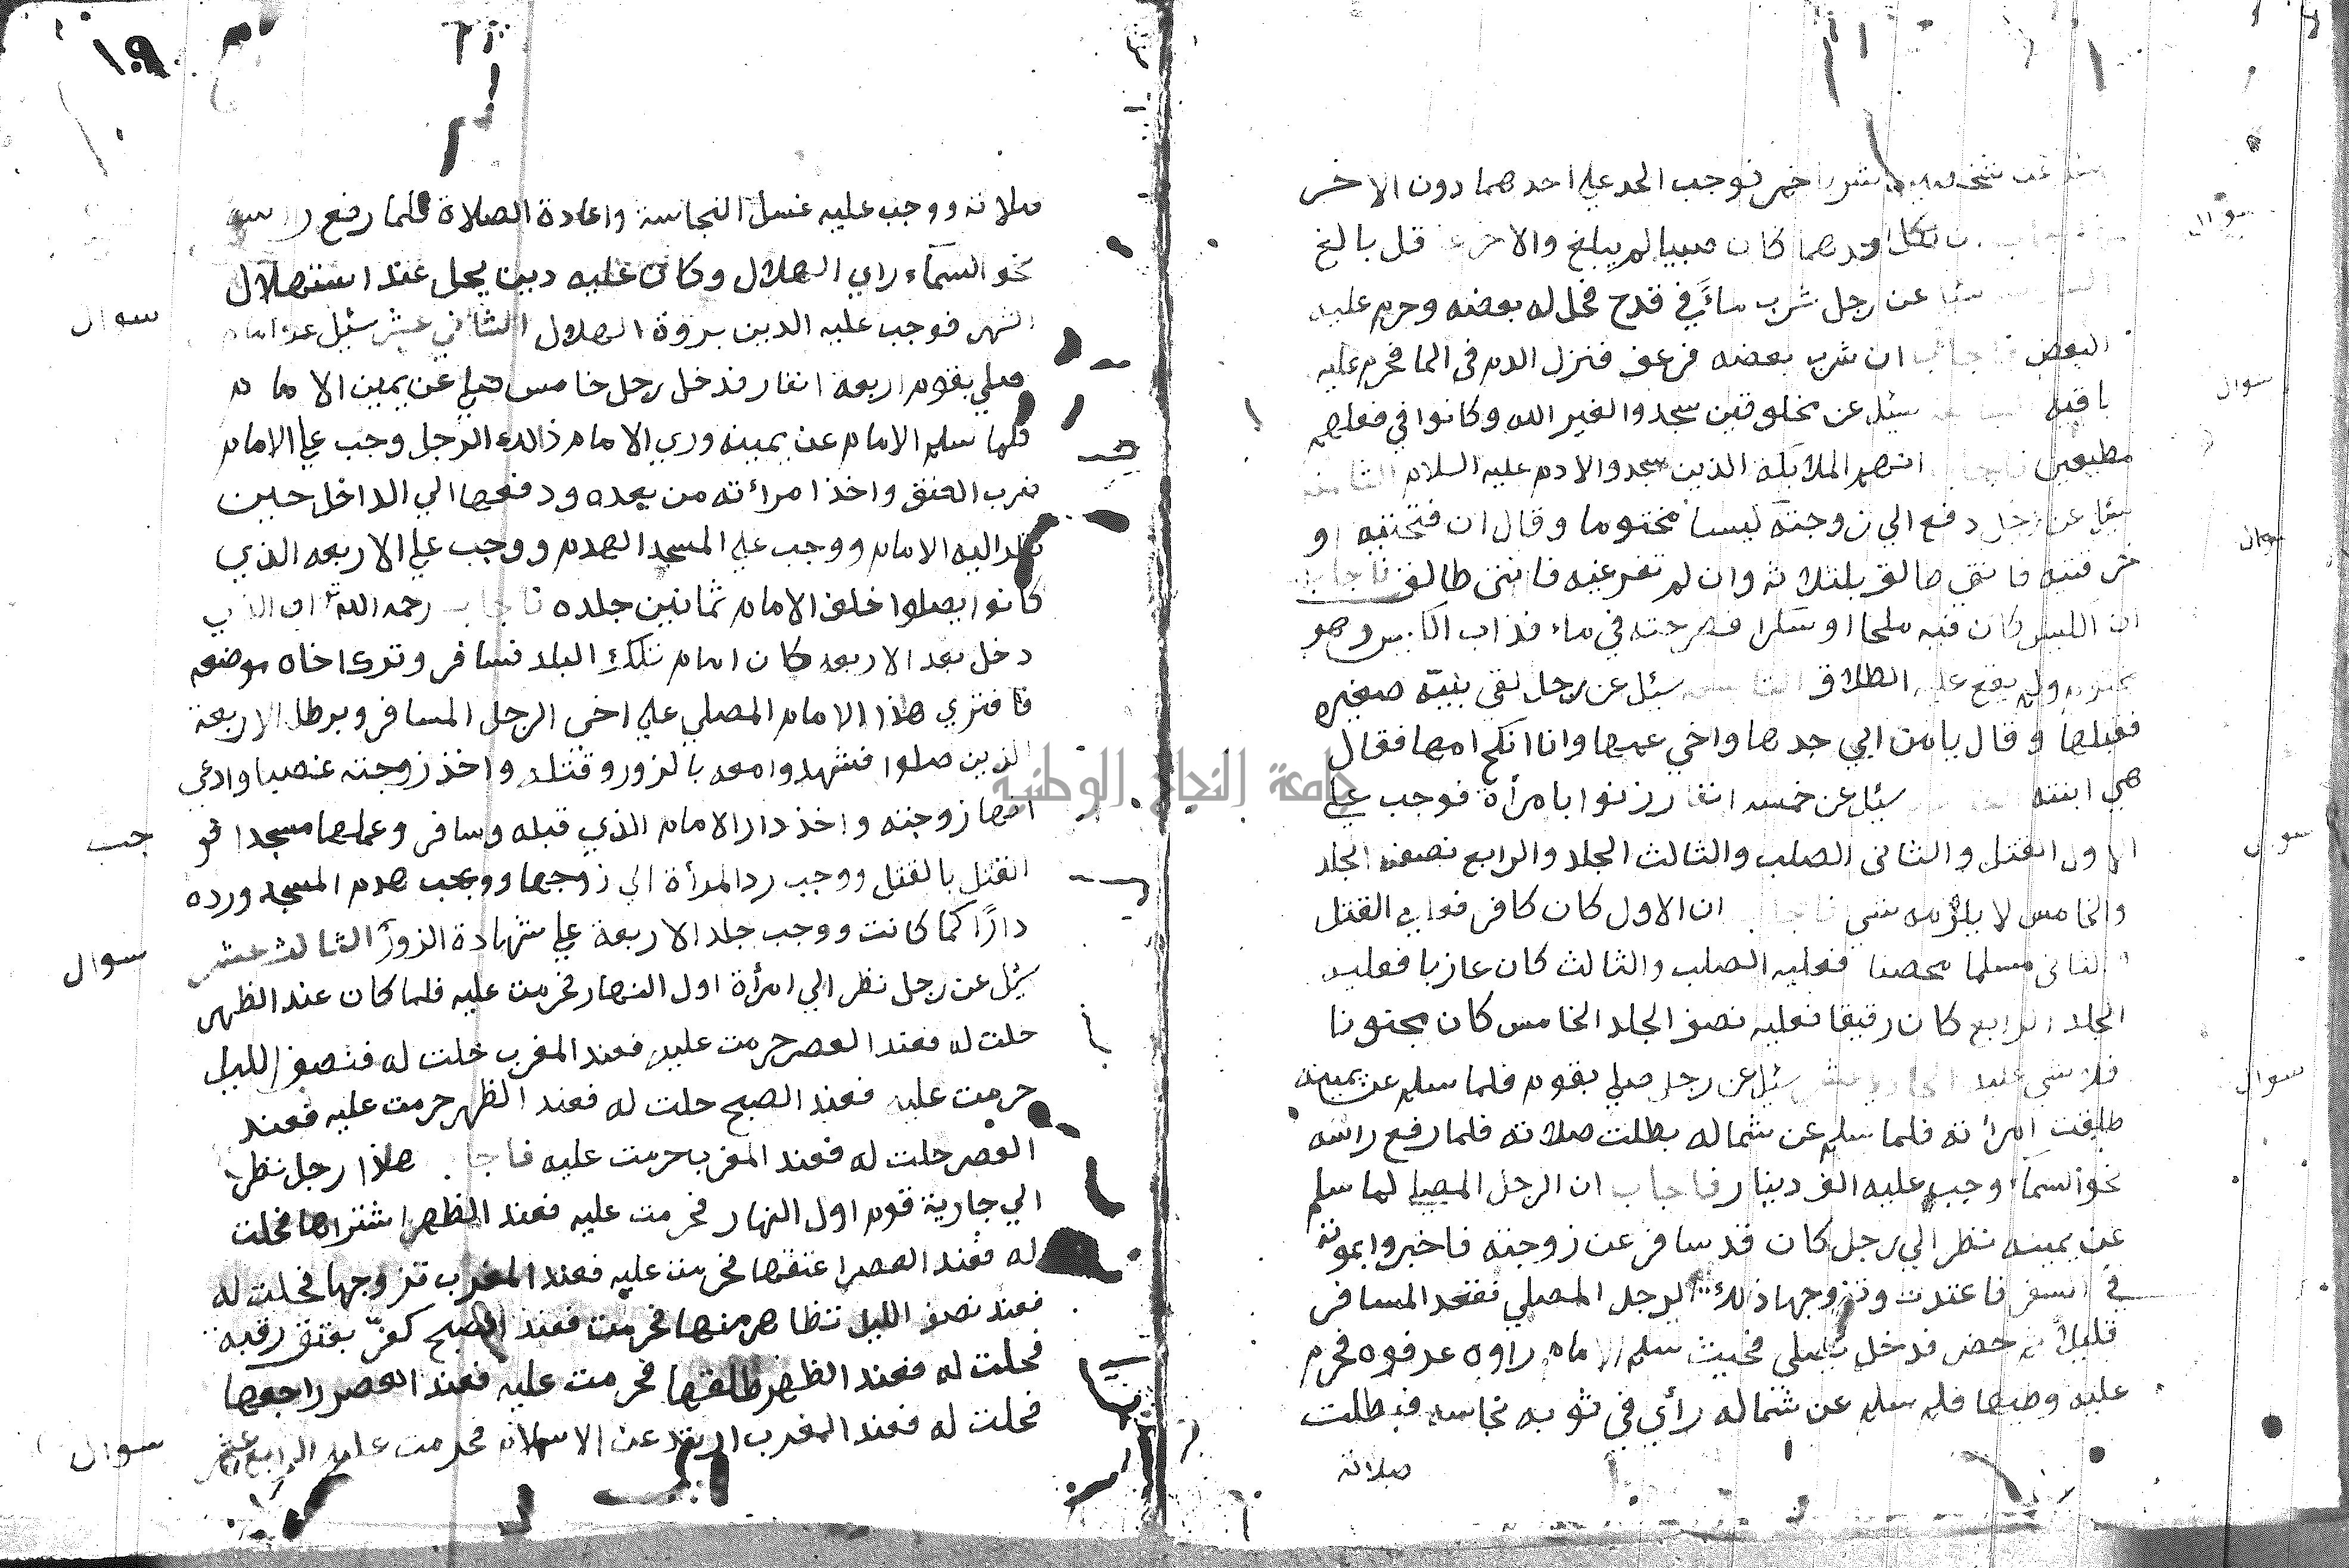 سئل عن شخصين شربا خمر فوجب الحد على احدهما دون الاخر
فاجاب بان كان احدهما كان صبيا لم يبلغ والاخر عاقل بالغ
سئل عن رجل شرب ماءً في قدح فحل له بعضه وحرم عليه
البعض فاجاب ان شرب بعضه فرعف فنزل الدم في الما فحرم عليه
باقيه سئل عن مخلوقين سجدوا لغير الله وكانوا في فعلهم
مطيعين فاجاب انهم الملائكة الذين سجدوا لادم عليه السلام الثامنة
سئل عن رجل دفع الي زوجته كيسا مختوما وقال ان فتحتيه او
خرقتيه فانتي طالق بلثلاثه وان لم تفرغيه فانتي طالق فاجاب
ان الكيس كان فيه ملحا او سكرا فطرحته في ماء فذاب الكيس وهو
مختوم ولم يقع عليه الطلاق التاسعه سئل عن رجل لقي بنية صغيره
فقبلها وقال يا من ابي جدها واخي عمها وانا انكح امها فقال
هي ابنته سئل عن خمسه انفار زنوا بامرأة فوجب علي
الاول القتل والثاني الصلب والثالث الجلد والرابع نصف الجلد
والخامس لا يلزمه شي فاجاب ان الاول كان كافر فعليه القتل
الثاني مسلما محصنا فعليه الصلب والثالث كان عازبا فعليه
الجلد الرابع كان رقيقا فعليه نصف الجلد الخامس كان مجنونا
فلا شي عليه الحادي عشر سئل عن رجل صلي بقوم فلما سلم عن يمينه
طلقت امرأته فلما سلم عن شماله بطلت صلاته فلما رفع راسه
نحو السماء وجب عليه الف دينار فاجاب ان الرجل المصلي لما سلم
عن يمينه نظر الي رجل كان قد سافر عن زوجته فاخبروا بموته
في السفر فاعتدت وتزوجها ذلك الرجل المصلي فقعد المسافر
قليلا ثم حضر فدخل يصلي فحيث سلم الامام راوه عرفوه فحرم
عليه وطيها فلم سلم عن شماله رأي في ثوبه نجاسه فبطلت
صلاته
١٠٩
صلاته ووجب عليه غسل النجاسة واعادة الصلاة فلما رفع راسه
نحو السماء راي الهلال وكان عليه دين يحل عند استهلال
الشهر فوجب عليه الدين بروة الهلال الثاني عشر سئل عن امام
صلي بقوم اربعة انفار فدخل رجل خامس صلي عن يمين الامام
فلما سلم الامام عن يمينه وري الامام ذالك الرجل وجب علي الامام
ضرب العنق واخذ امرأته من يعده ودفعها الي الداخل حين
نظر اليه الامام ووجب علي المسجد الهدم ووجب علي الاربعه الذي
كانوا يصلوا خلف الامام ثمانين جلده فاجاب رحمه الله ان الذي
دخل بعد الاربعه كان امام تلك البلد فسافر وترك اخاه موضعه
فافتري هذا الامام المصلي علي اخي الرجل المسافر وبرطل الاربعة
الذين صلوا فشهدوا معه بالزور وقتله واخذ زوجته غصبا وادعي
انها زوجته واخذ دار الامام الذي قبله وسافر وعملها مسجدا فو
جب
القتل بالقتل ووجب رد المرأة الي زوجها ووجب هدم المسجد ورده
دارًا كما كانت ووجب جلد الاربعة علي شهادة الزور الثالث عشر
سئل عن رجل نظر الي امرأة اول النهار فحرمت عليه فلما كان عند الظهر
حلت له فعند العصر حرمت عليه فعند المغرب حلت له فنصف الليل
حرمت عليه فعند الصبح حلت له فعند الظهر حرمت عليه فعند
العصر حلت له فعند المغرب حرمت عليه فاجاب هذا رجل نظر
الي جارية قوم اول النهار فحرمت عليه فعند الظهر اشتراها فحلت
له فعند العصر اعتقها فحرمت عليه فعند المغرب تزوجها فحلت له
فعند نصف الليل تظاهر منها فحرمت فعند الصبح كفّر بعتق رقبه
فحلت له فعند الظهر طلقها فحرمت عليه فعند العصر راجعها
فحلت له فعند المغرب ارتد عن الاسلام فحرمت عليه الرابع عشر
سوال
سوال
سوال
سوال
سوال
سوال
سوال
سوال
جامعة النجاح الوطنية